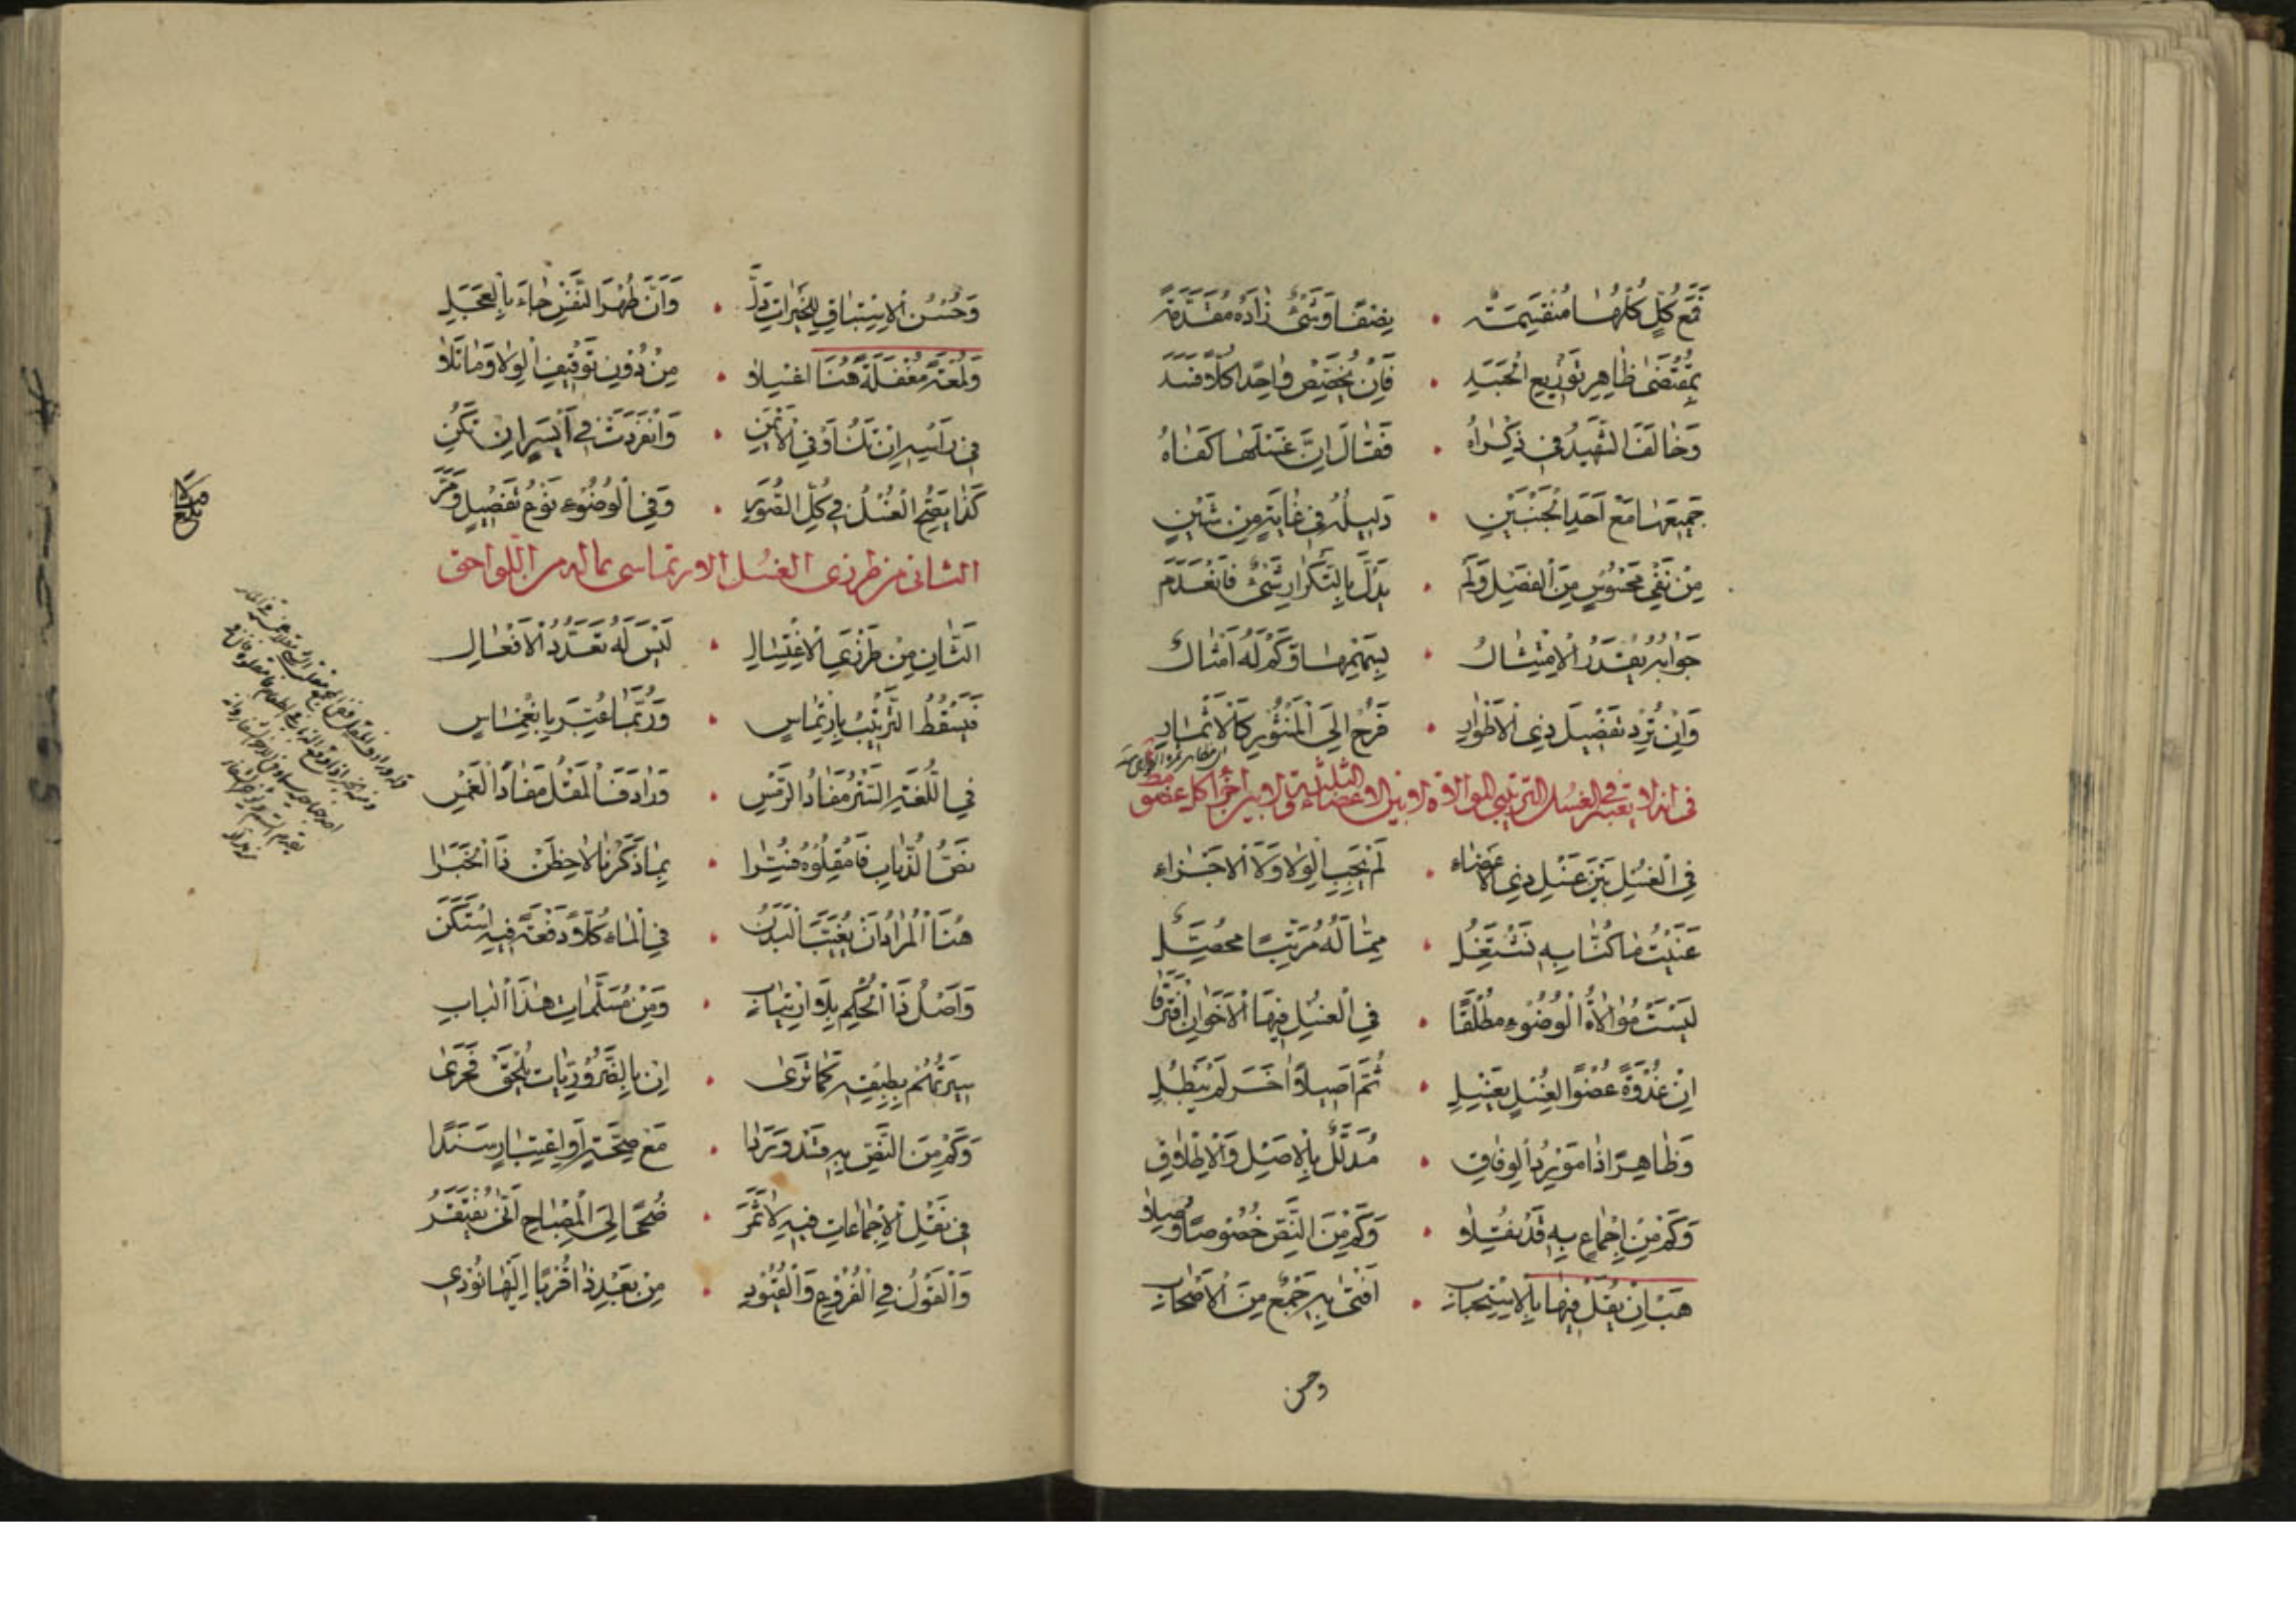 فَمَع كُلٍّ كُلّهَا مُنقَسِمَة • بِضِفّهَا وَشَيْءٌ زَادَهُ مُقَدَّمَة
بِمُقْتَضى ظَاهِرِ تَوْزِيعِ الْجَسَدِ • فَإِنْ يُخَصِّصْ وَاحِدًا كُلًّا فَسَد
وَخَالَفَ الشَّهِيدُ فِي ذِكْرَاهُ • فَقَالَ إِنَّ غَسْلَهَا كَفَاهُ
جَمِيعَهَا مَعْ أَحَدِ الْجَنْبَيْنِ • دَلِيلُهُ فِي غَايَةٍ مِنْ شَيْنِ
مِنْ نَفْيِ مَحْسُوسٍ مِنَ الْفَصْلِ وَلَمْ • يَدُلَّ بِالتَّكْرَارِ شَيْءٌ فَانْعَدَم
جَوَابُهُ بِقَدْرِ الْإِمْتِثَالُ • وَكَمْ لَهُ أَمْثَالُ
وَإِنْ تُرِدْ تَفْصِيلَ ذِي الْأَطْوَارِ • فَرُحْ إِلَى الْمَنْثُورِ كَالْأَثْمَارِ
في انه لا يعتبر في الغسل الترتيبي الموالاة لا بين الاعضاء الثلثة ولا بين اجزاء كل عضو
فِي الْغُسْلِ بَيْنَ غَسْلِ ذِي الْأَعْضَاءِ • لَمْ يَجِبِ الْوِلَا وَلَا الْأَجْزَاءِ
عَنَيْتُ مَا كُنَّا بِهِ نَشْتَغِلُ • مِمَّا لَهُ مُرَتِّبًا مُحَصِّلُ
لَيْسَتْ مُوَالَاةُ الْوُضُوءِ مُطْلَقًا • فِي الْغُسْلِ فِيهَا الْأَخَوَانِ افْتَرَقَا
إِنْ غُدْوَةً عُضْوًا لِغُسْلٍ يَغْسِلِ • ثُمَّ أَصِيلًا آخَرَ لَمْ يَبْطُلِ
وَظَاهِرًا ذَا مَوْرِدُ الْوِفَاقِ • مُدَلَّلٌ بِالْأَصْلِ وَالْإِطْلَاقِ
وَكَمْ مِنْ إِجْمَاعٍ بِهِ قَدْ نُقِلَا • وَكَمْ مِنَ النَّصِّ خُصُوصًا وُصِلَا
هَبْ إِنْ يُقَلْ فِيهَا بِالْإِسْتِحْبَابِ • أَفْتَى بِهِ جَمْعٌ مِنَ الْأَصْحَابِ
وحسن
وَحُسْنُ الْإِسْتِبَاقِ لِلْخَيْرَاتِ دَلَّ • وَأَنَّ طُهْرَ النَّفْسِ جَاءَ بِالْعَجَلِ
وَلُمْعَةٌ مُغْفَلَةٌ هُنَا اغْسِلَا • مِنْ دُونِ تَوْقِيفِ الْوِلَا وَمَا تَلَا
فِي رَأْسِهِ إِنْ تَكُ أَوْ فِي الْأَيْمَنِ • وَانْفَرَدَتْ فِي أَيْسَرٍ إِنْ تَكُنِ
كَذَا يَصِحُّ الْغُسْلُ فِي كُلِّ الصُّوَرِ • وَفِي الْوُضُوءِ نَوْعُ تَفْصِيلٍ وَمَرَّ
الثاني من طرزي الغسل الارتماسي بماله من اللواحق
الثَّانِ مِنْ طَرْزَيِ الْإِغْتِسَالِ • لَيْسَ لَهُ تَعَدُّدُ الْأَفْعَالِ
فَيَسْقُطُ التَّرْتِيْبُ بِارْتِمَاسِ • وَرُبَّمَا عُبِّرَ بِانْغِمَاسِ
فِي اللُّغَةِ السَّتْرُ مَفَادُ الرَّمْسِ • وَرَادَفَ الْمَقْلُ مَفَادَ الْغَمْسِ
نَصُّ الذُّبَابِ فَامْقُلُوهُ فُسِّرَا • بِمَا ذَكَرْنَا لَاحِظَنْ ذَا الْخَبَرَا
هُنَا الْمُرَادُ أَنْ يُغَيَّبَ الْبَدَنُ • فِي الْمَاءِ كُلًّا دَفْعَةً فِيهِ اسْتَكَنَّ
وَأَصْلُ ذَا الْحُكْمِ بِلَا ارْتِيَابِ • وَمِنْ مُسَلَّمَاتِ هٰذَا الْبَابِ
سِيرَتُهُمْ بِطِبْقِهِ كَمَا تَرَى • إِنْ بِالضَّرُورِيَّاتِ يُلْحَقْ فَحَرَى
وَكَمْ مِنَ النَّصِّ بِهِ قَدْ وَرَدَا • مَعْ صِحَّةٍ أَوِ اعْتِبَارٍ سَنَدًا
فِي نَقْلِ الْإِجْمَاعَاتِ فِيهِ لَا ثَمَرَ • ضُحًى إِلَى الْمِصْبَاحِ أَنَّى يُفْتَقَرُ
وَالْقَوْلُ فِي الْفُرُوعِ وَالْقُيُودِ • مِنْ بَعْدِ ذَا قُرْبًا إِلَيْهَا نُودِي